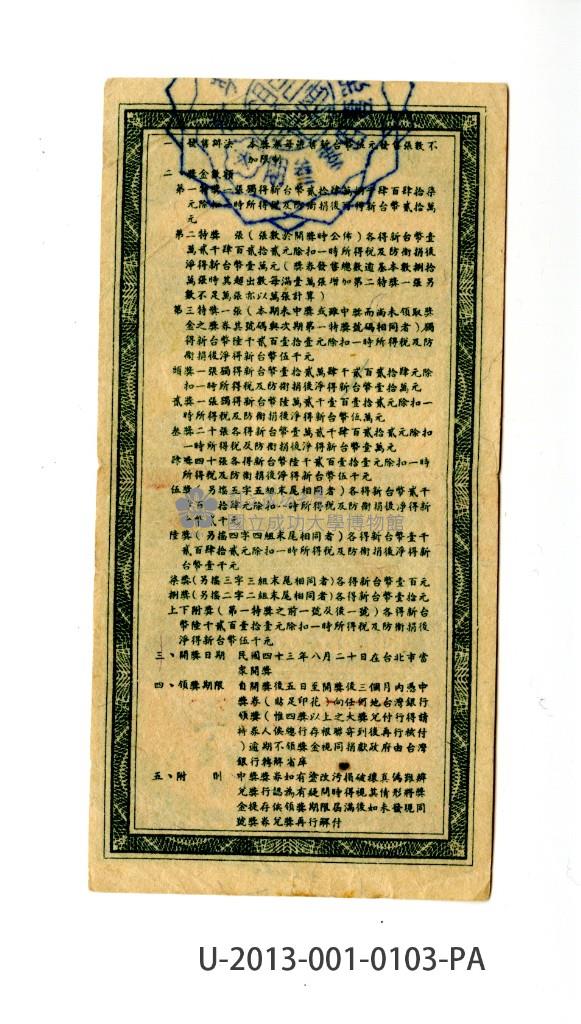 一、發售辦法 本獎券每張售新台幣伍元發售張數不
加限制
二、獎金數額
第一特獎一張獨得新台幣貳拾肆萬 千肆百肆拾柒
元除扣一時所得稅及防衛捐後淨得新台幣貳拾萬
元
第二特獎 張(張數於開獎時公佈)各得新台幣壹
萬貳千肆百貳拾貳元除扣一時所得稅及防衛捐後
淨得新台幣壹萬元(獎券發售總數逾基本數捌拾
萬張時其超出數每滿壹萬張增加第二特獎一張另
數不足萬張亦以萬張計算)
第三特獎一張(本期未中獎或雖中獎而尚未領取獎
金之獎券其號碼與次期第一特獎號碼相同者)獨
得新台幣陸千貳百壹拾壹元除扣一時所得稅及防
衛捐後淨得新台幣伍千元
頭獎一張獨得新台幣壹拾貳萬肆千貳百貳拾肆元除
扣一時所得稅及防衛捐後淨得新台幣壹拾萬元
貳獎一張獨得新台幣陸萬貳千壹百壹拾貳元除扣一
時所得稅及防衛捐後淨得新台幣伍萬元
叁獎二十張各得新台幣壹萬貳千肆百貳拾貳元除扣
一時所得稅及防衛捐後淨得新台幣壹萬元
肆獎四十張各得新台幣陸千貳百壹拾壹元除扣一時
所得稅及防衛捐後淨得新台幣伍千元
伍獎(另搖五字五組末尾相同者)各得新台幣貳千
百 拾肆元除扣一時所得稅及防衛捐後淨得新
幣貳千元
陸獎(另搖四字四組末尾相同者)各得新台幣壹千
貳百肆拾貳元除扣一時所得稅及防衛捐後淨得新
台幣壹千元
柒獎(另搖三字三組末尾相同者)各得新台幣壹百元
捌獎(另搖二字二組末尾相同者)各得新台幣壹拾元
上下附獎(第一特獎之前一號及後一號)各得新台
幣陸千貳百壹拾壹元除扣一時所得稅及防衛捐後
淨得新台幣伍千元
三、開獎日期 民國四十三年八月二十日在台北市當
家開獎
四、領獎期限 自開獎後五日至開獎後三個月內憑中
獎券(貼足印花)向任何地台灣銀行
領獎(惟四獎以上之大獎兌付行得請
持券人俟總行存根聯寄到後再行核付
)逾期不領獎金視同捐獻政府由台灣
銀行轉解省庫
五、附 則 中獎獎券如有塗改污損破壞真偽難辨
兌獎行認為有疑問時得視其情形將獎
金提存俟領獎期限屆滿後如未發現同
號獎券兌獎再行解付
國立成功大學博物館
U-2013-001-0103-PA